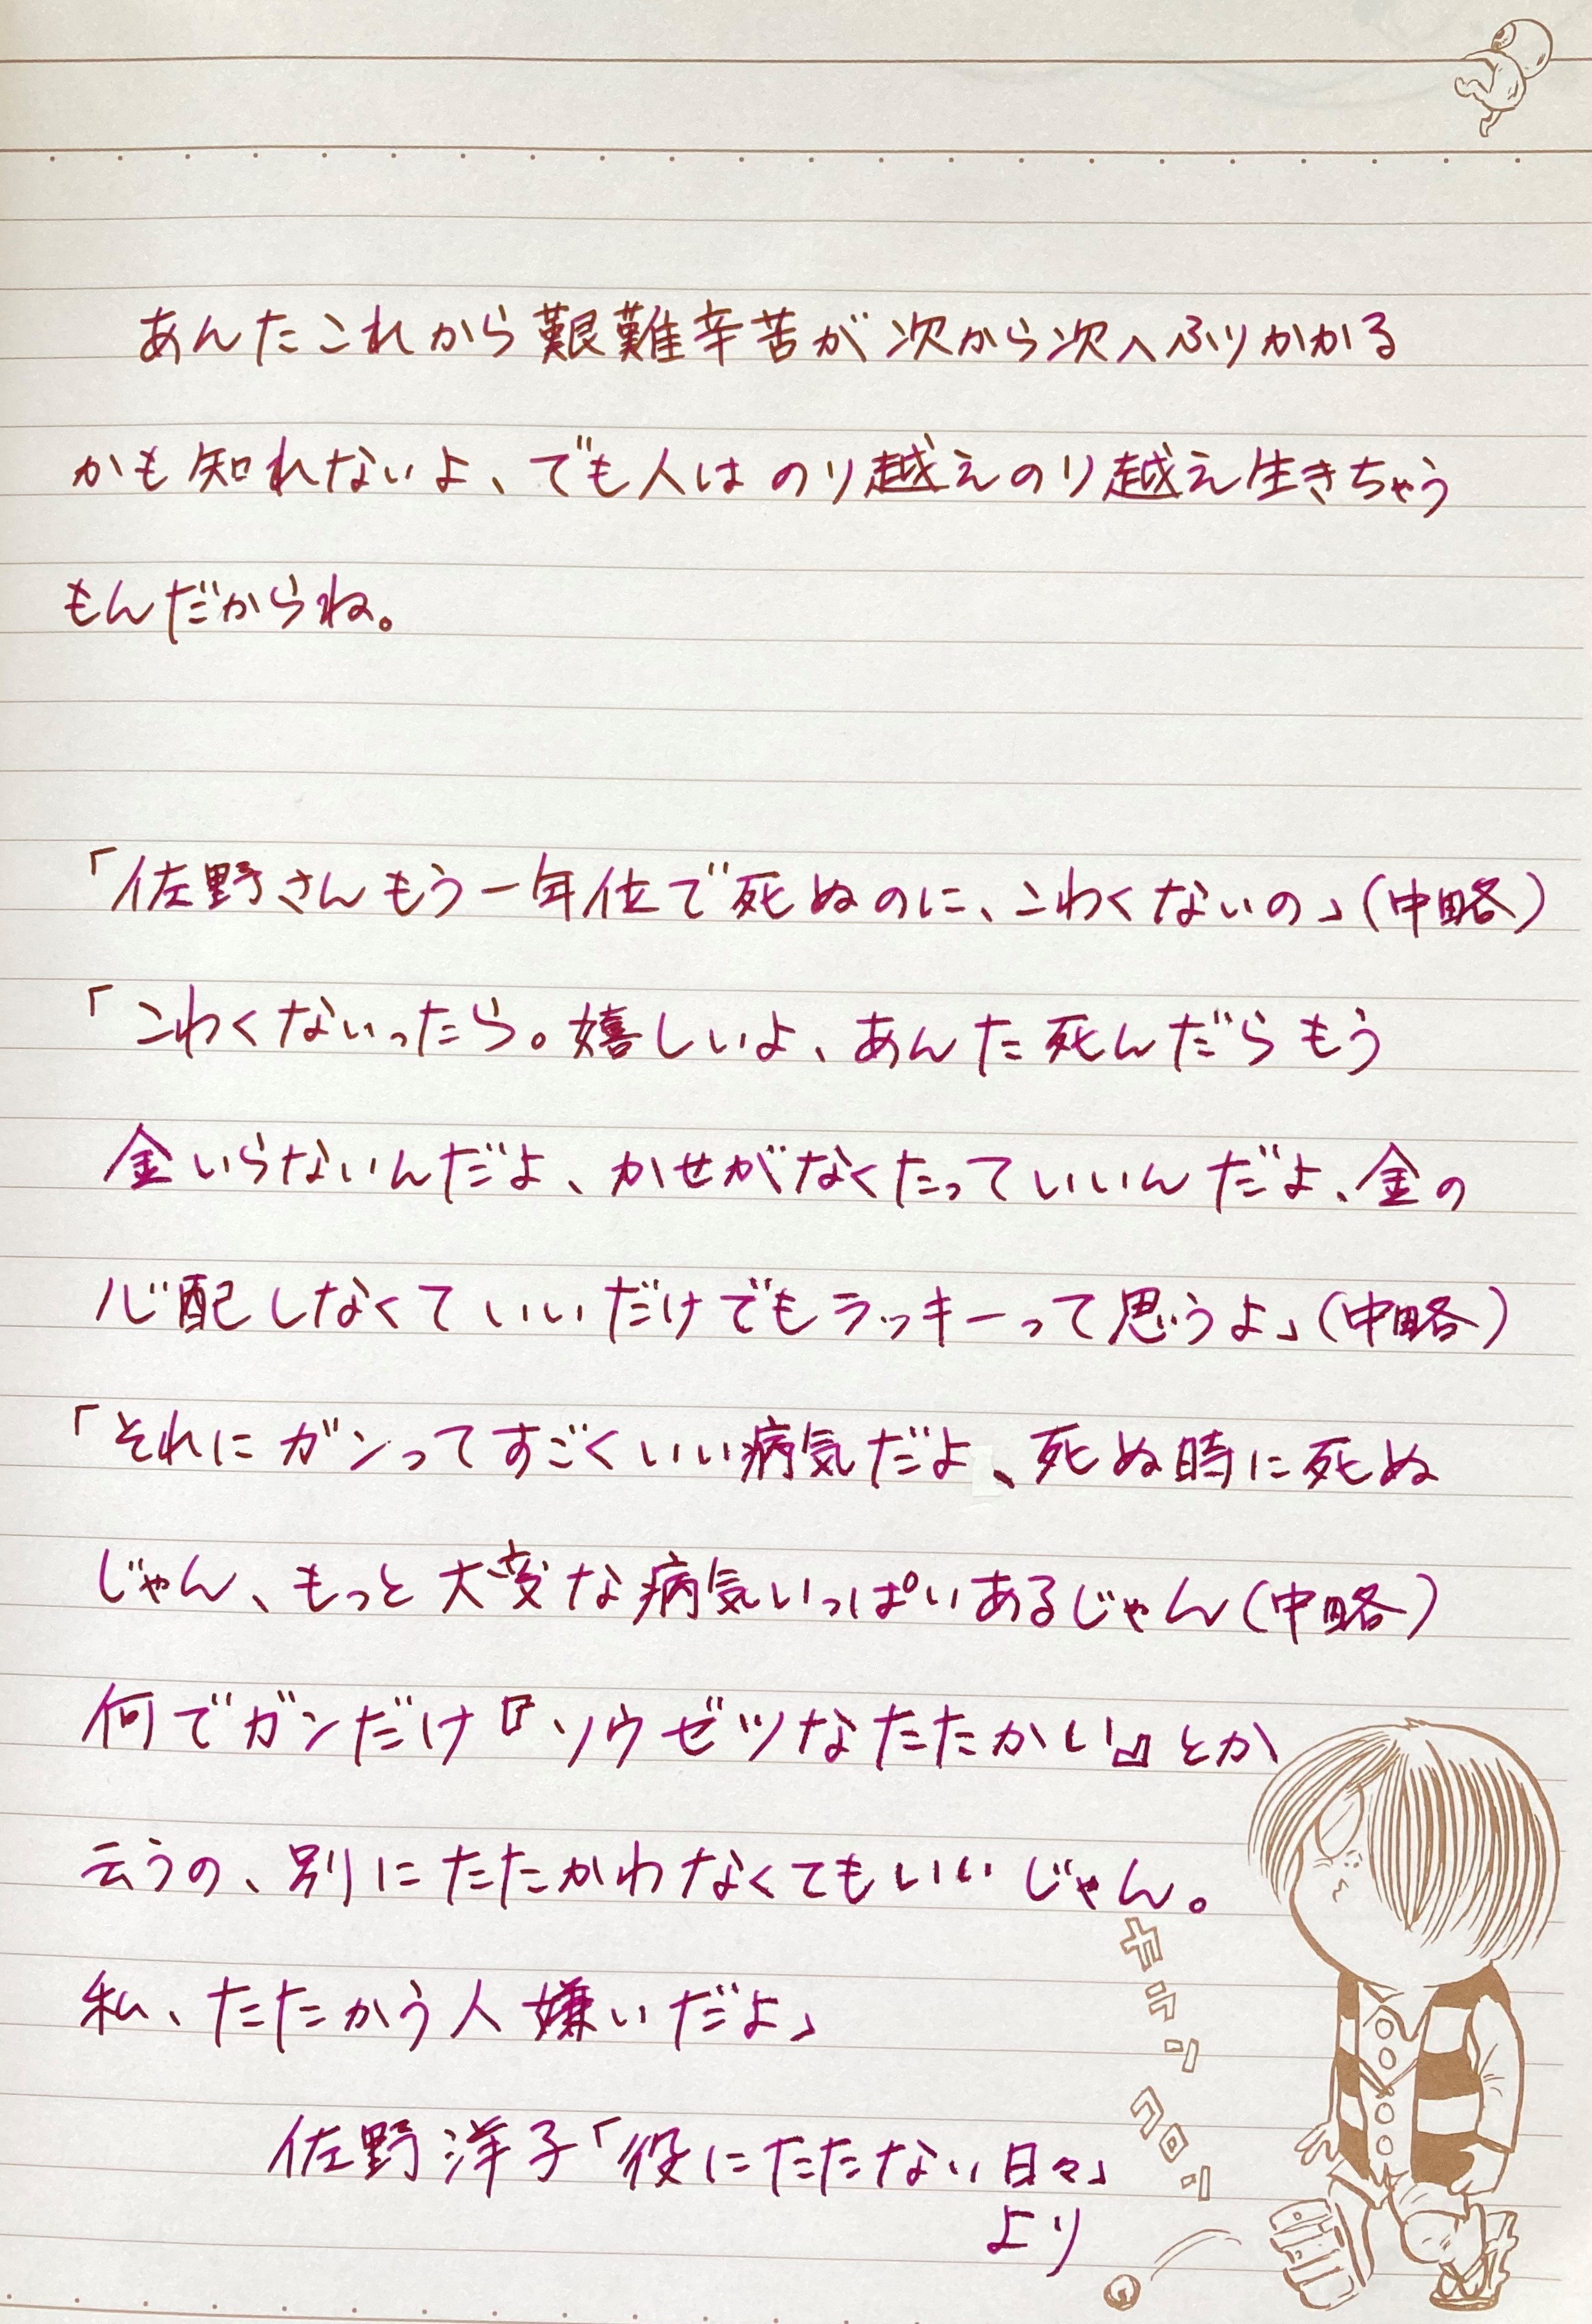 あんたこれから艱難辛苦が次から次へふりかかる
かも知れないよ、でも人はのり越えのり越え生きちゃう
もんだからね。
「佐野さんもう一年位で死ぬのに、こわくないの」(中略)
「こわくないったら。嬉しいよ、あんた死んだらもう
金いらないんだよ、かせがなくたっていいんだよ、金の
心配しなくていいだけでもラッキーって思うよ」(中略)
「それにガンってすごくいい病気だよ、死ぬ時に死ぬ
じゃん、もっと大変な病気いっぱいあるじゃん(中略)
何でガンだけ『ソウゼツなたたかい』とか
云うの、別にたたかわなくてもいいじゃん。
私、たたかう人嫌いだよ」
佐野洋子「役にたたない日々」
より
カランコロン